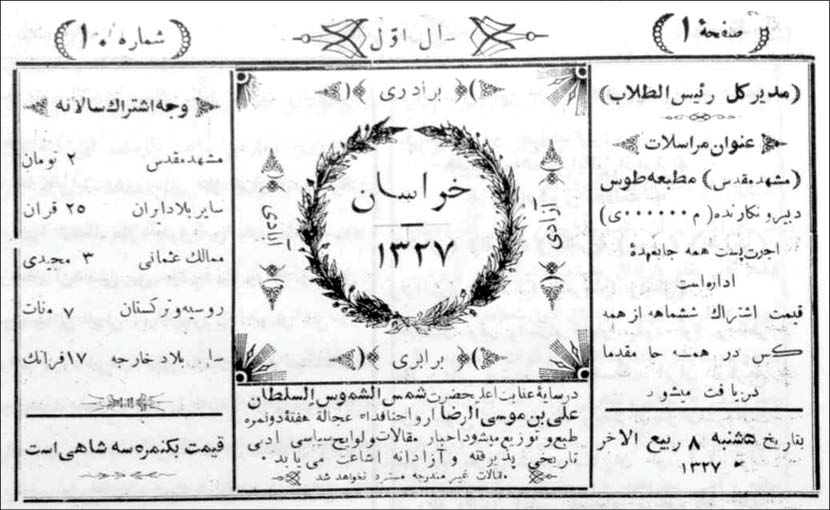 صفحهٔ ۱
سال اوّل
شماره ۱۰
(مدیر کل رئیس الطلاب)
عنوان مراسلات
(مشهد مقدس) مطبعه طوس
دبیر و نگارنده (م ۰۰۰۰۰۰ ی)
اجرت پست همه جا بعهدهٔ
اداره است
قیمت اشتراك ششماهه از همه
کس در همه جا مقدما
دریافت میشود
بتاریخ ۵شنبه ۸ ربیع الاخر
۱۳۲۷
برادری
آزادی
خراسان
۱۳۲۷
آزادی
برادری
در سایهٔ عنایت اعلیحضرت شمس الشموس السلطان
علی بن موسی الرضا ارواحنا فداه عجالة هفتهٔ دو نمره
طبع و توزیع میشود اخبار مقالات و لوایح سیاسی ادبی
تاریخی پذیرفته و آزادانه اشاعت می یابد
مقالات غیر مندرجه مسترد نخواهد شد
وجه اشتراك سالانه
مشهد مقدس ۲ تومان
سایر بلاد ایران ۲۵ قران
ممالك عثمانی ۳ مجیدی
روسیه و ترکستان ۷ منات
سایر بلاد خارجه ۱۷ فرانك
قیمت یکنمره سه شاهی است